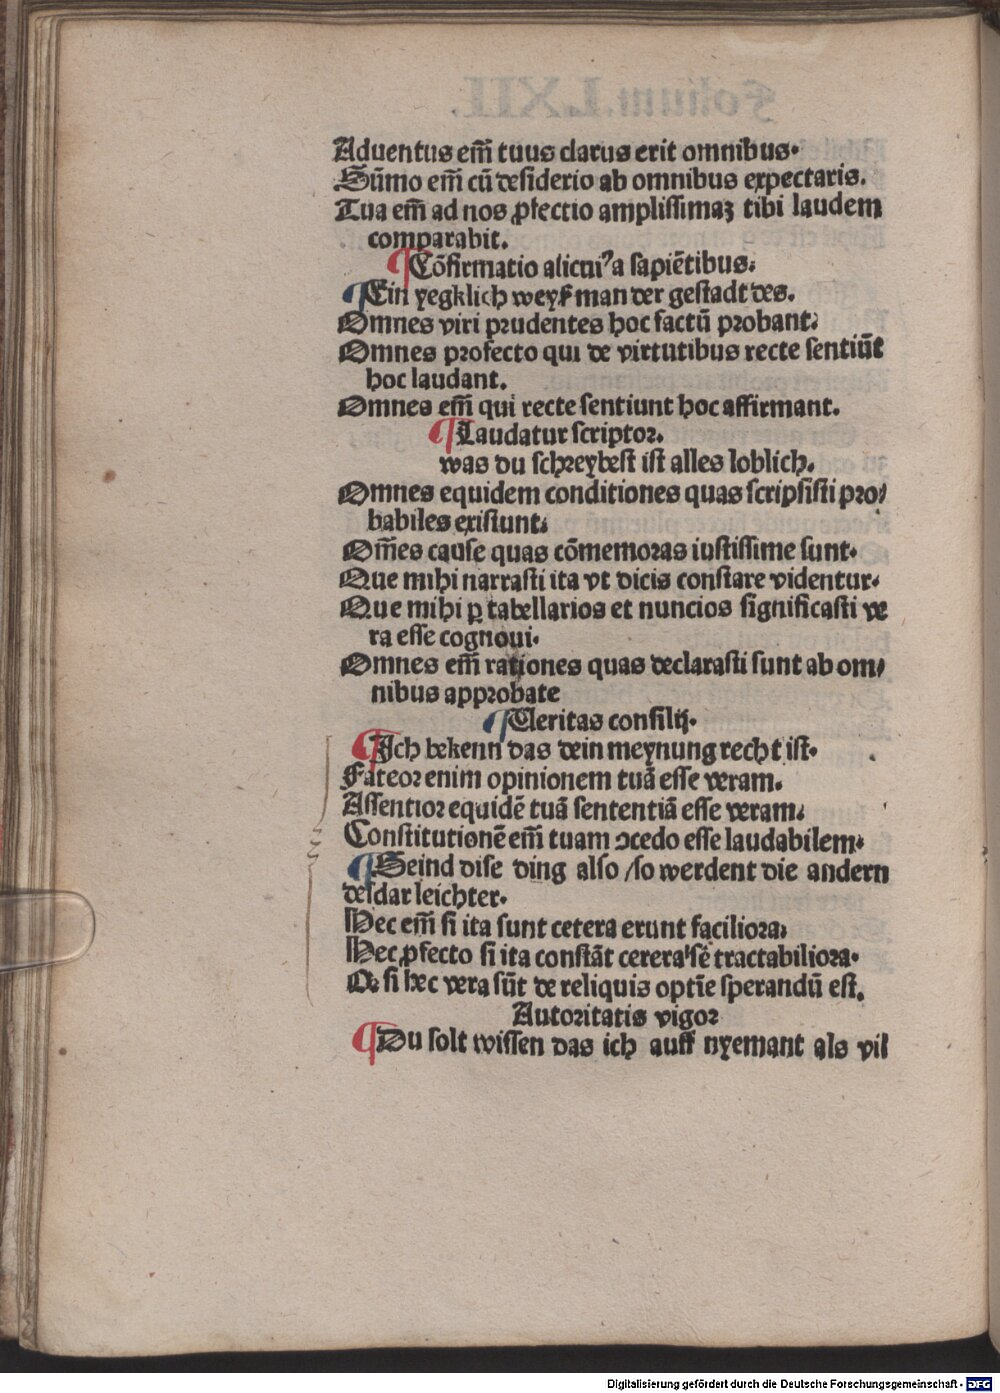 Aduentus em̄ tuus clarus erit omnibus.
Sūmo em̄ cū desiderio ab omnibus expectaris.
Tua em̄ ad nos ꝓfectio amplissimaꝫ tibi laudem
comparabit.
¶ Cōfirmatio alicuiꝰ a sapiētibus.
¶ Ein yegklich weyß man der gestadt des.
Omnes viri prudentes hoc factū probant.
Omnes profecto qui de virtutibus recte sentiūt
hoc laudant.
Omnes em̄ qui recte sentiunt hoc affirmant.
¶ Laudatur scriptor.
was du schreybest ist alles loblich.
Omnes equidem conditiones quas scripsisti pro/
babiles existunt.
Om̄es cause quas cōmemoras iustissime sunt.
Que mihi narrasti ita vt dicis constare videntur.
Que mihi ꝑ tabellarios et nuncios significasti ve
ra esse cognoui.
Omnes em̄ rationes quas declarasti sunt ab om/
nibus approbate
¶ Ueritas consilij.
¶ Ich bekenn das dein meynung recht ist.
Fateor enim opinionem tuā esse veram.
Assentior equidē tuā sententiā esse veram.
Constitutionē em̄ tuam ↄcedo esse laudabilem.
¶ Seind dise ding also /so werdent die andern
desdar leichter.
Hec em̄ si ita sunt cetera erunt faciliora.
Hec ꝓfecto si ita constāt cerera sē tractabiliora.
Qꝛ si hec vera sūt de reliquis optīe sperandū est.
Autoritatis vigor
¶ Du solt wissen das ich auff nyemant als vil
Folium. LXII.
Digitalisierung gefördert durch die Deutsche Forschungsgemeinschaft - DFG